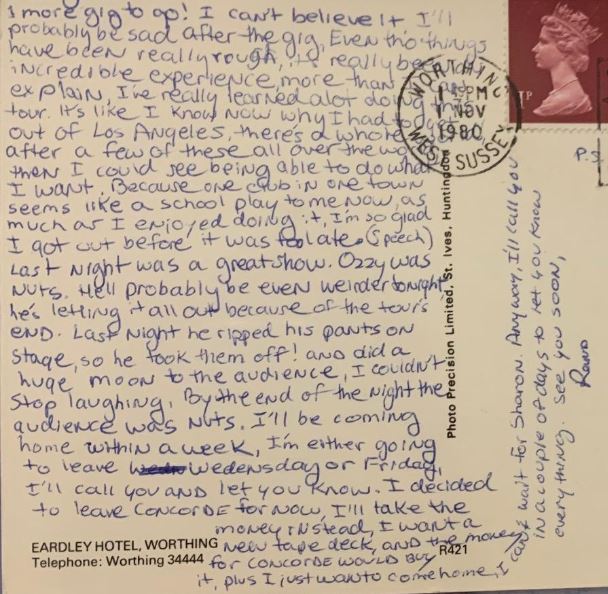 1 more gig to go! I can't believe it I'll
probably be sad after the gig, Even tho' things
have been really rough, it's really been an
incredible experience, more than
explain, I've really learned alot doing this
tour. It's like I know now why I had to get
out of Los Angeles, there's a whole
after a few of these all over the wo
then I could see being able to do what
I want, Because one club in one town
seems like a school play to me now, as
much as I enjoyed doing it, I'm so glad
I got out before it was too late. (speech)
Last night was a great show. Ozzy was
nuts. He'll probably be even weirder tonight,
he's letting it all out because of the tour's
END. Last night he ripped his pants on
stage, so he took them off! and did a
huge moon to the audience, I couldn't
stop laughing, By the end of the night the
audience was nuts. I'll be coming
home within a week, I'm either going
to leave Wedensday or Friday,
I'll call you and let you know. I decided
to leave CONCORDE for now, I'll take the
money instead, I want a
new tape deck, and the money
for CONCORDE would buy
it, plus I just want to come home, I
can't wait for Sharon. Anyway, I'll call you
in a couple of days to let you know
everything. See you soon,
Rand
P.S.
WORTHING
PM
NOV
1980
WEST SUSSEX
1P
Photo Precision Limited, St. Ives, Huntingdon
EARDLEY HOTEL, WORTHING
Telephone: Worthing 34444
R421